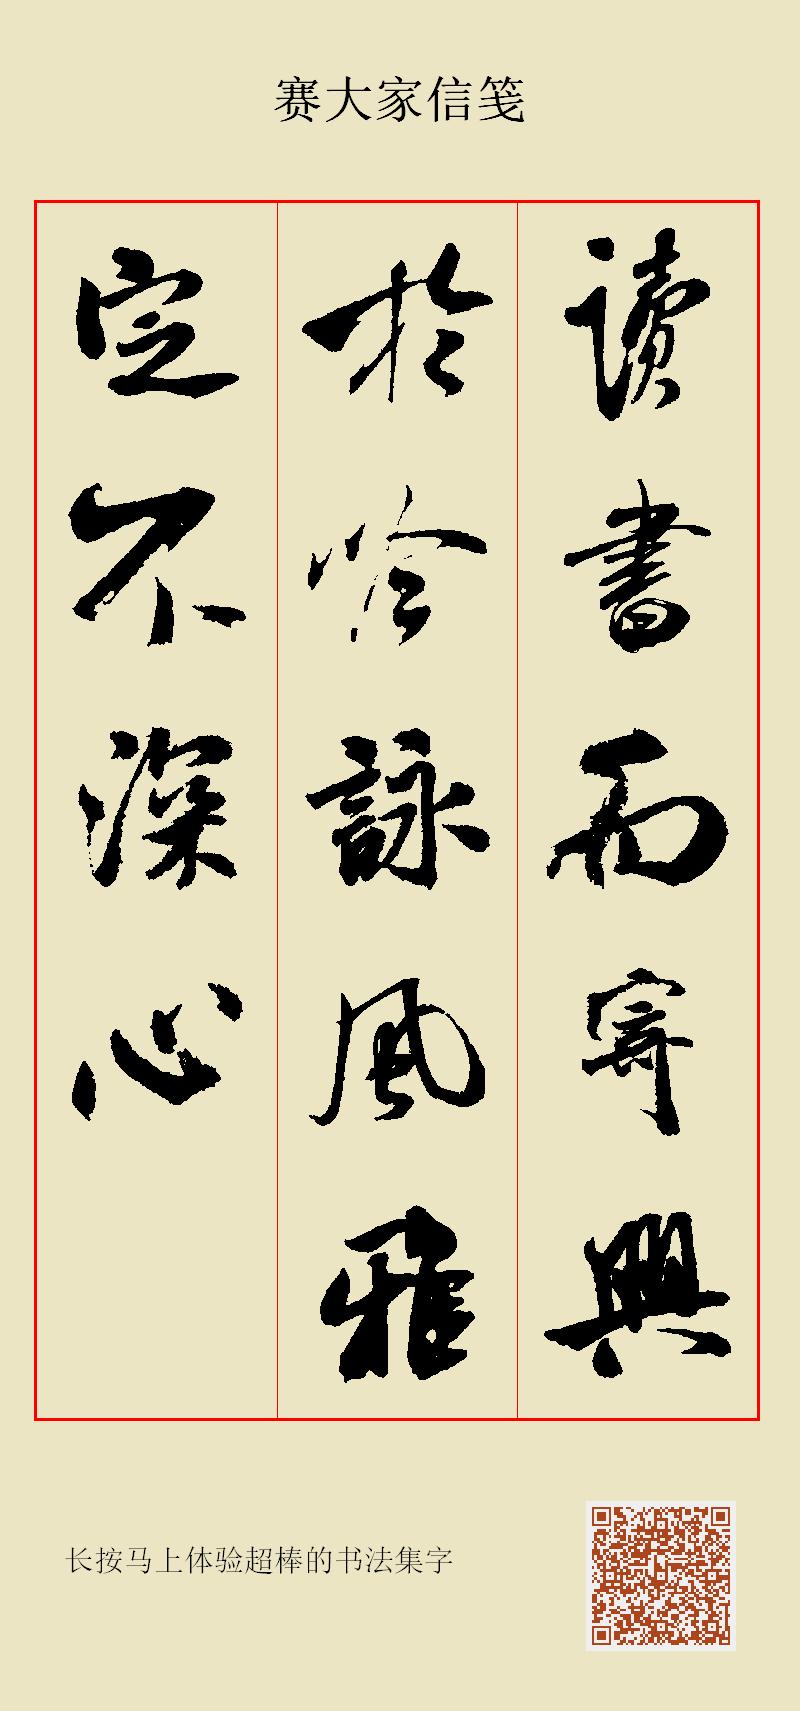 赛大家信笺
讀書而寄興
於吟詠風雅
定不深心
长按马上体验超棒的书法集字